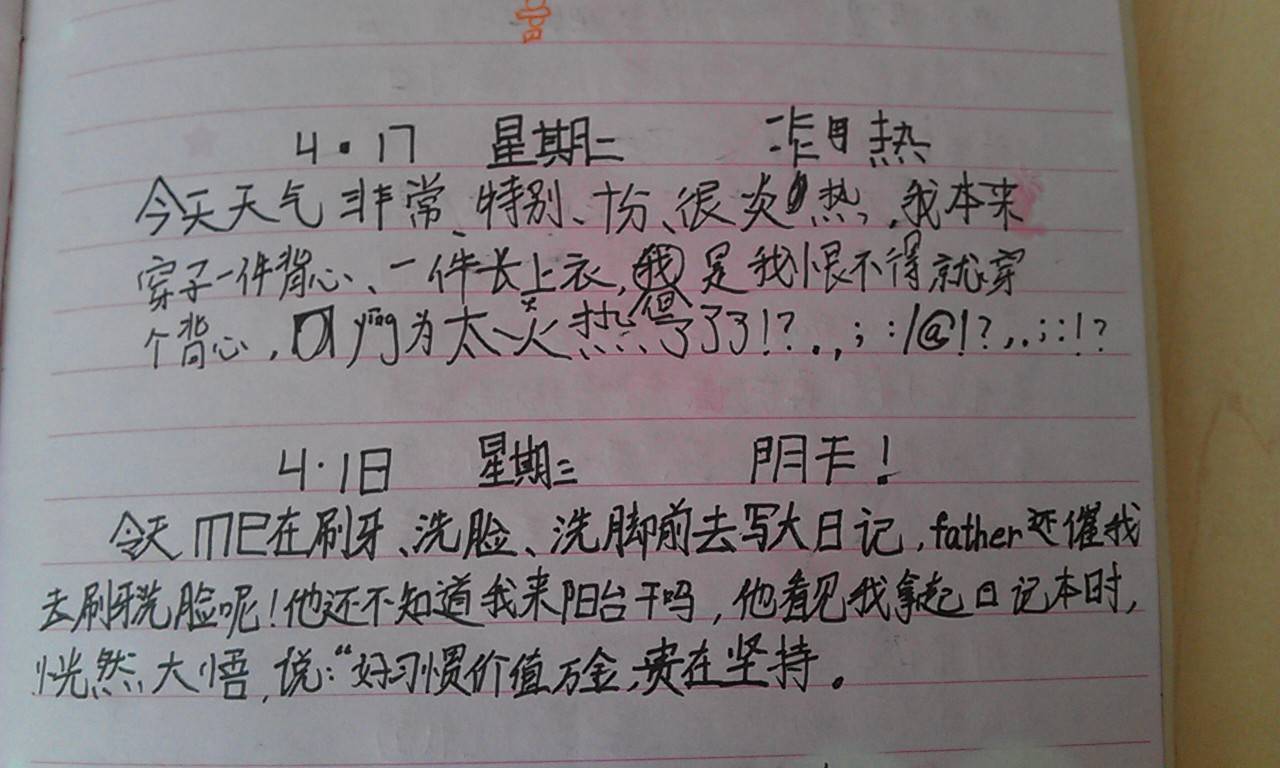 4·17 星期二 热
今天天气非常、特别、十分、很炎热,我本来
穿子一件背心、一件长上衣,但是我恨不得就穿
个背心,因ying为太炎热了了了!?.,;:/@!?,.;::!?
4·1日 星期三 阴卡!
今天ME在刷牙、洗脸、洗脚前去写大日记,father还催我
去刷牙洗脸呢!他还不知道我来阳台干吗,他看见我拿起日记本时,
恍然大悟,说:“好习惯价值万金,贵在坚持。